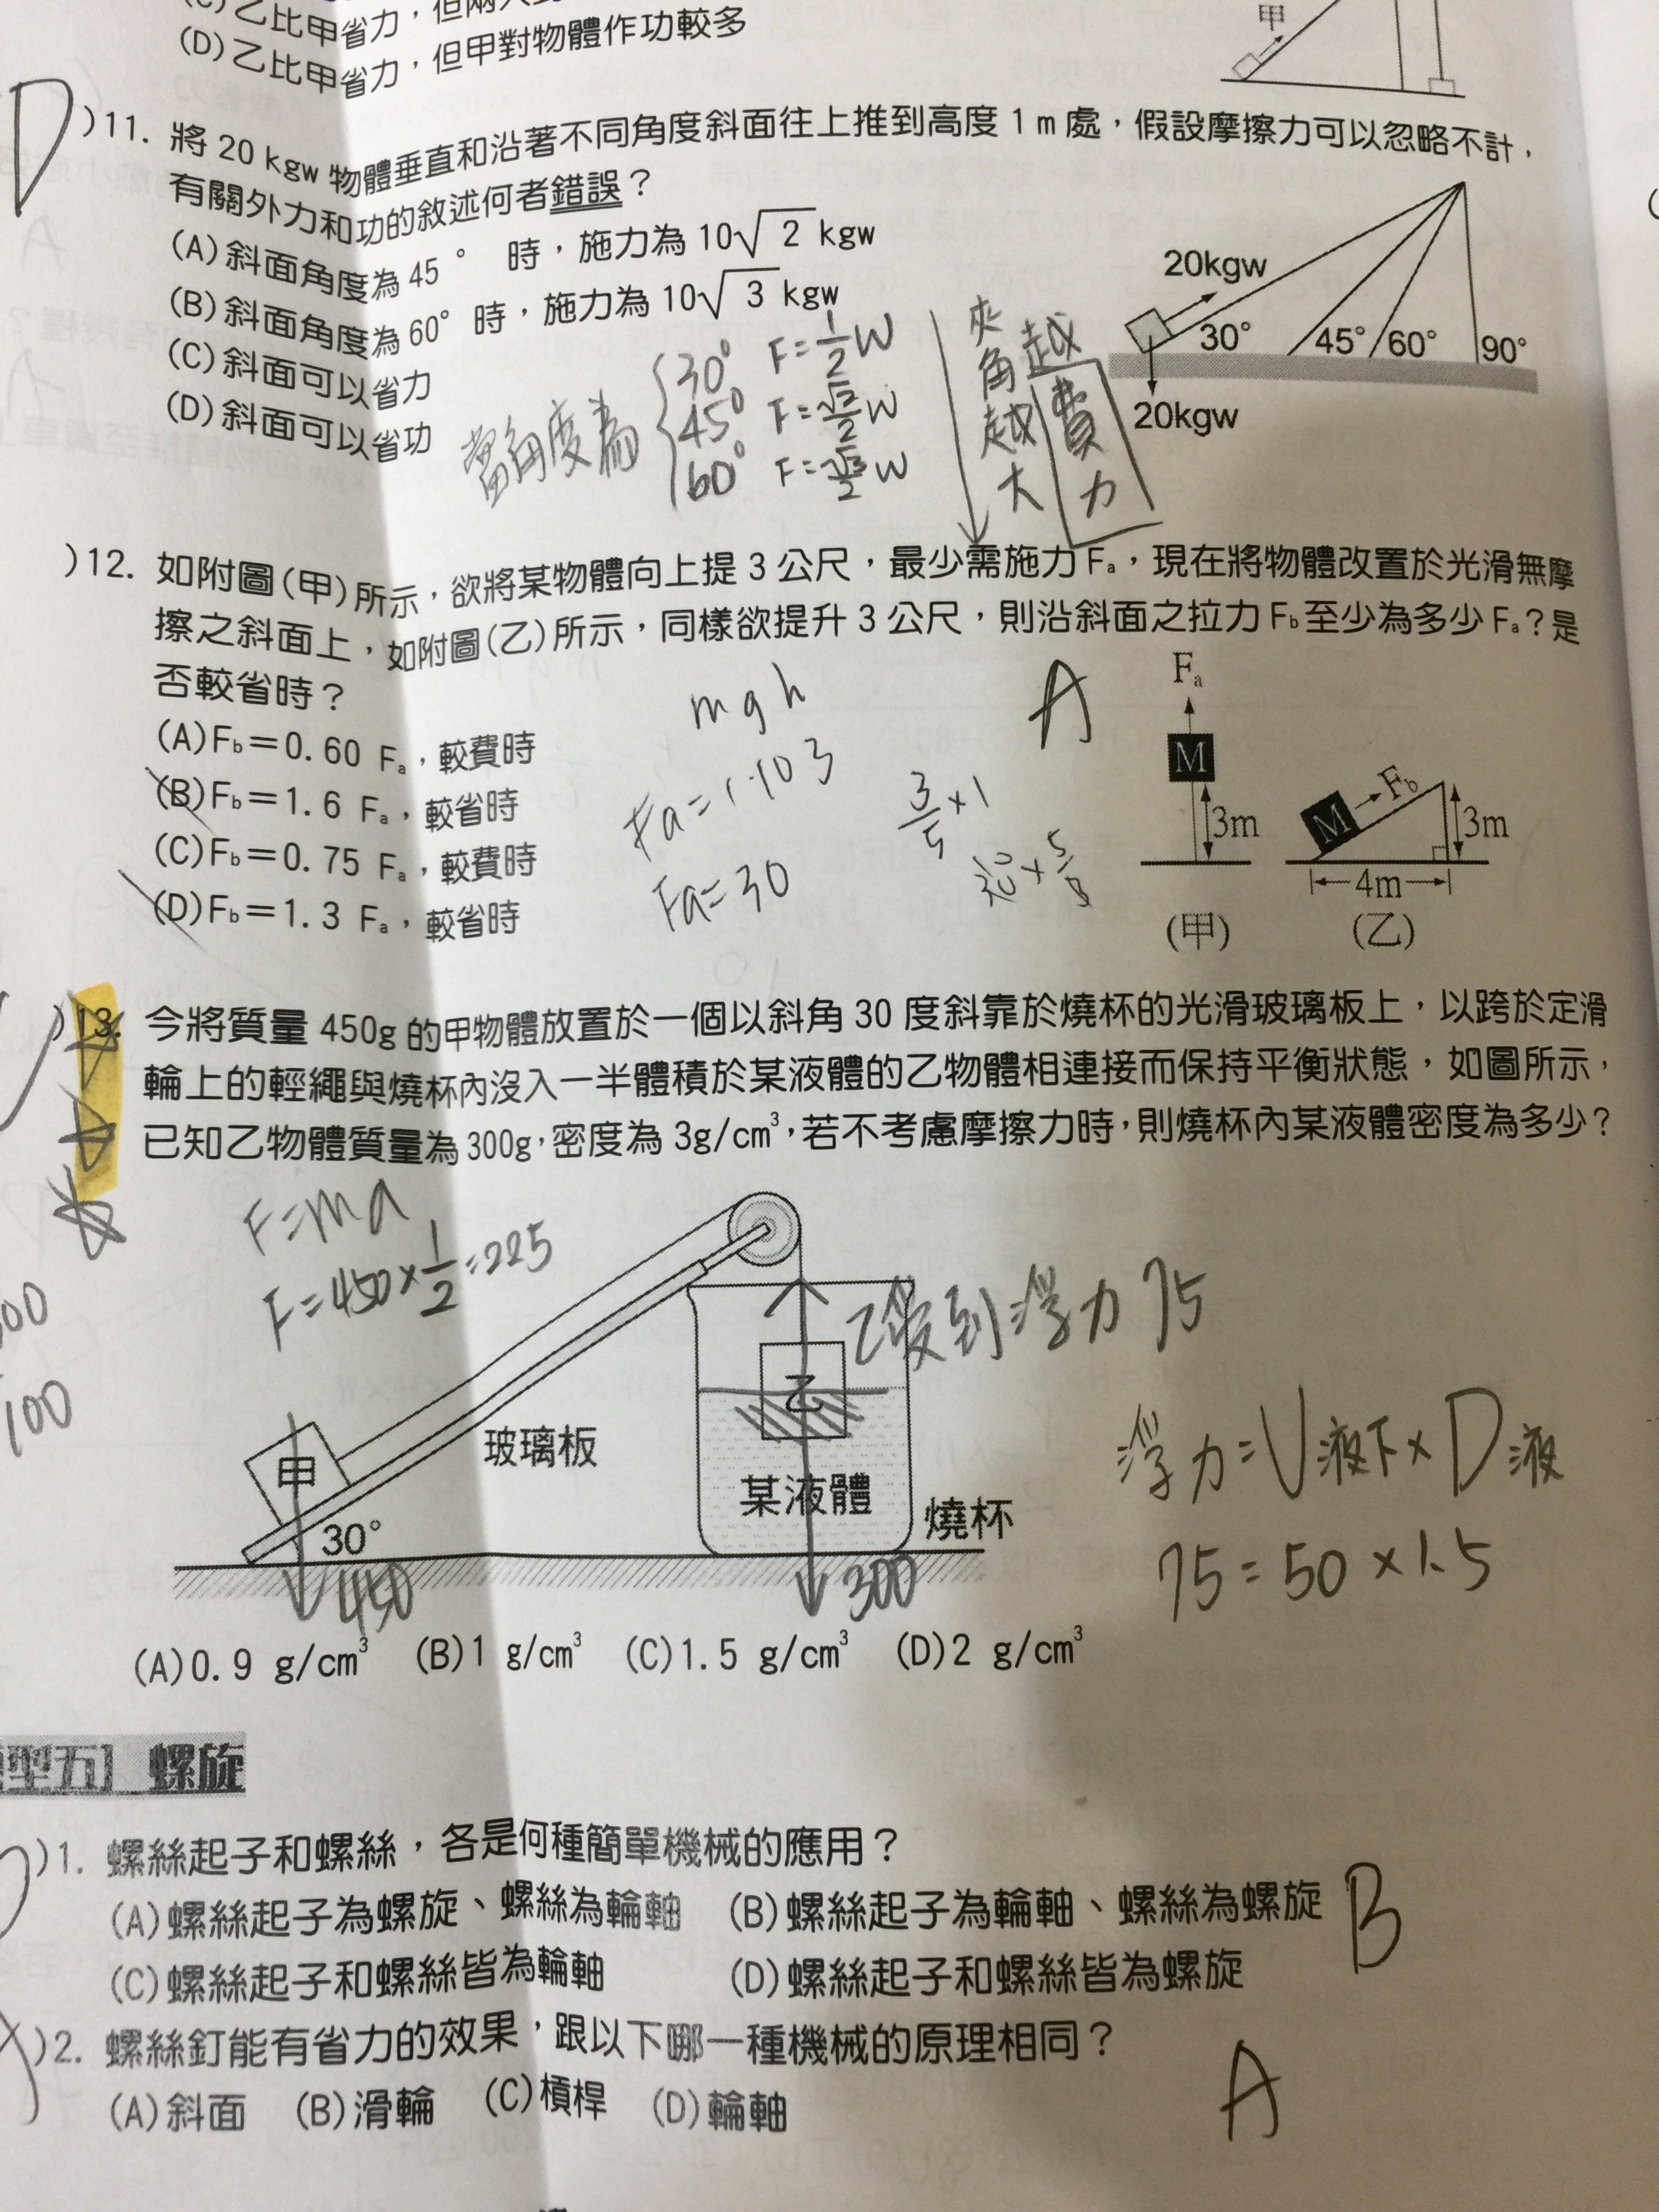 乙比甲省力，但兩人
(D)乙比甲省力，但甲對物體作功較多
甲
D )11. 將 20 kgw 物體垂直和沿著不同角度斜面往上推到高度 1 m 處，假設摩擦力可以忽略不計，
有關外力和功的敘述何者錯誤？
(A)斜面角度為 45° 時，施力為 10√2 kgw
(B)斜面角度為 60° 時，施力為 10√3 kgw
(C)斜面可以省力
(D)斜面可以省功
20kgw
30° 45° 60° 90°
20kgw
當角度為
30° F=1/2 W
45° F=√2/2 W
60° F=√3/2 W
夾角越大
越費力
)12. 如附圖(甲)所示，欲將某物體向上提 3 公尺，最少需施力 Fa，現在將物體改置於光滑無摩
擦之斜面上，如附圖(乙)所示，同樣欲提升 3 公尺，則沿斜面之拉力 Fb 至少為多少 Fa？是
否較省時？
(A)Fb＝0.60 Fa，較費時
(B)Fb＝1.6 Fa，較省時
(C)Fb＝0.75 Fa，較費時
(D)Fb＝1.3 Fa，較省時
mgh
Fa=1·10 3
Fa=30
3/5×1
A
Fa
M
3m
(甲)
M
Fb
3m
4m
(乙)
)13. 今將質量 450g 的甲物體放置於一個以斜角 30 度斜靠於燒杯的光滑玻璃板上，以跨於定滑
輪上的輕繩與燒杯內沒入一半體積於某液體的乙物體相連接而保持平衡狀態，如圖所示，
已知乙物體質量為 300g，密度為 3g/cm³，若不考慮摩擦力時，則燒杯內某液體密度為多少？
F=ma
F=450×1/2=225
100
乙受到浮力 75
浮力=V液下×D液
75=50×1.5
甲
30°
玻璃板
乙
某液體
燒杯
450
300
(A)0.9 g/cm³ (B)1 g/cm³ (C)1.5 g/cm³ (D)2 g/cm³
型五] 螺旋
)1. 螺絲起子和螺絲，各是何種簡單機械的應用？
(A)螺絲起子為螺旋、螺絲為輪軸 (B)螺絲起子為輪軸、螺絲為螺旋
(C)螺絲起子和螺絲皆為輪軸 (D)螺絲起子和螺絲皆為螺旋
B
)2. 螺絲釘能有省力的效果，跟以下哪一種機械的原理相同？
(A)斜面 (B)滑輪 (C)槓桿 (D)輪軸
A